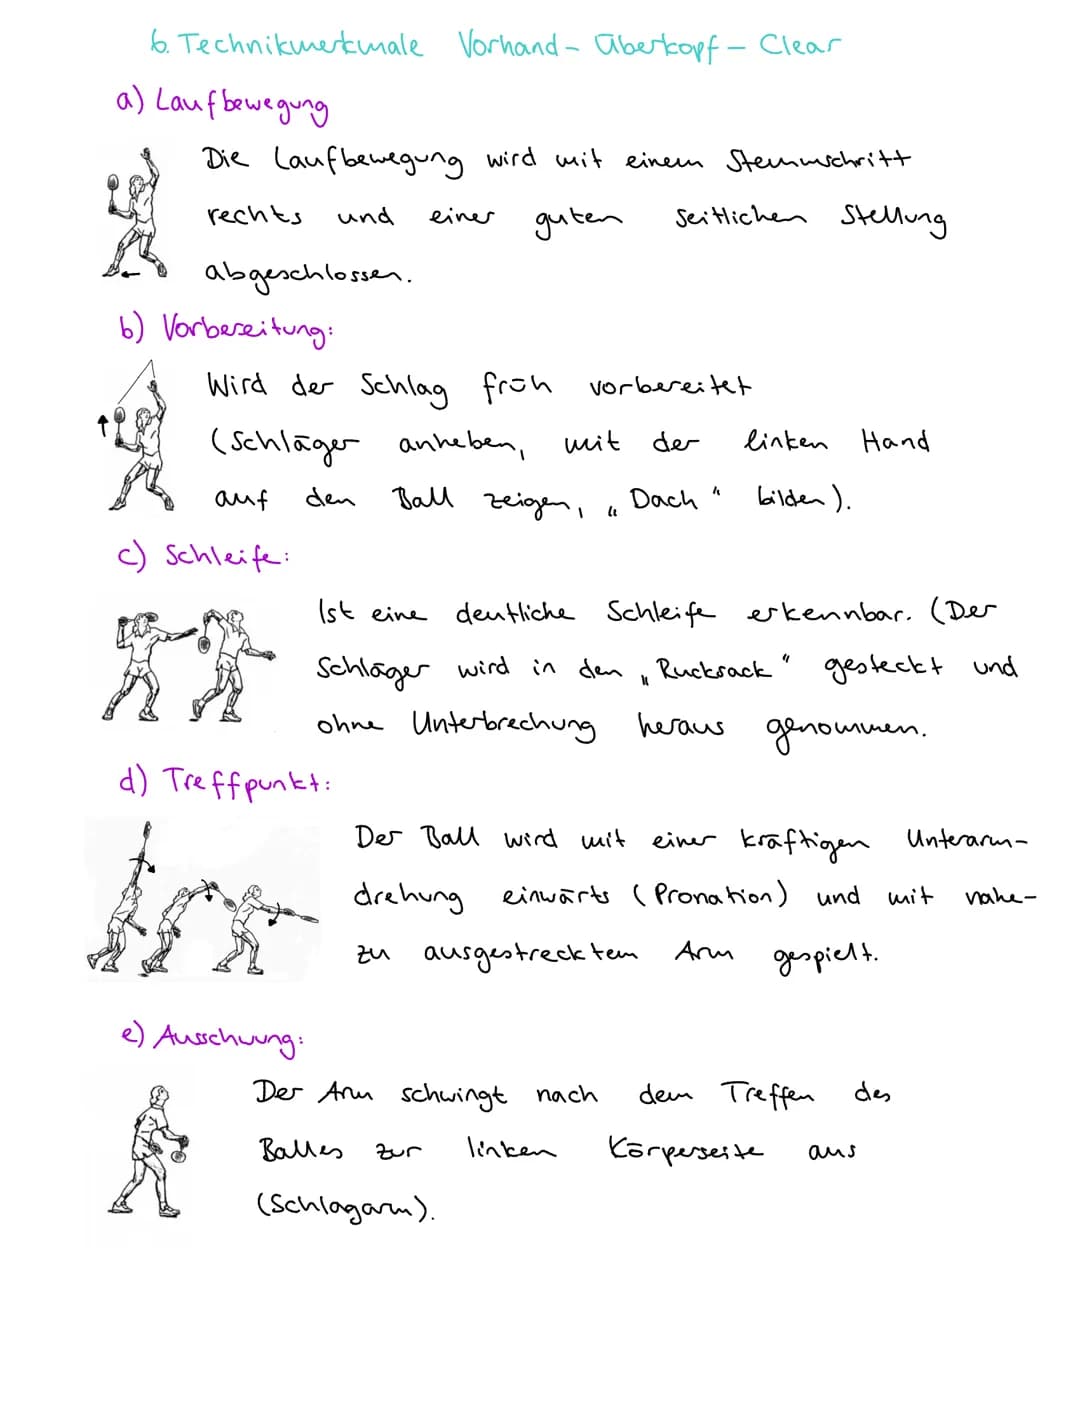 6. Technikmerkmale Vorhand - Überkopf - Clear
a) Laufbewegung
Die Laufbewegung wird mit einem Stemmschritt
rechts und einer guten seitlichen Stellung
abgeschlossen.
b) Vorbereitung:
Wird der Schlag früh vorbereitet
(Schläger anheben, mit der linken Hand
auf den Ball zeigen, „Dach" bilden).
c) Schleife:
Ist eine deutliche Schleife erkennbar. (Der
Schläger wird in den „Rucksack" gesteckt und
ohne Unterbrechung heraus genommen.
d) Treffpunkt:
Der Ball wird mit einer kräftigen Unterarm-
drehung einwärts (Pronation) und mit nahe-
zu ausgestrecktem Arm gespielt.
e) Ausschwung:
Der Arm schwingt nach dem Treffen des
Balles zur linken Körperseite aus
(Schlagarm).